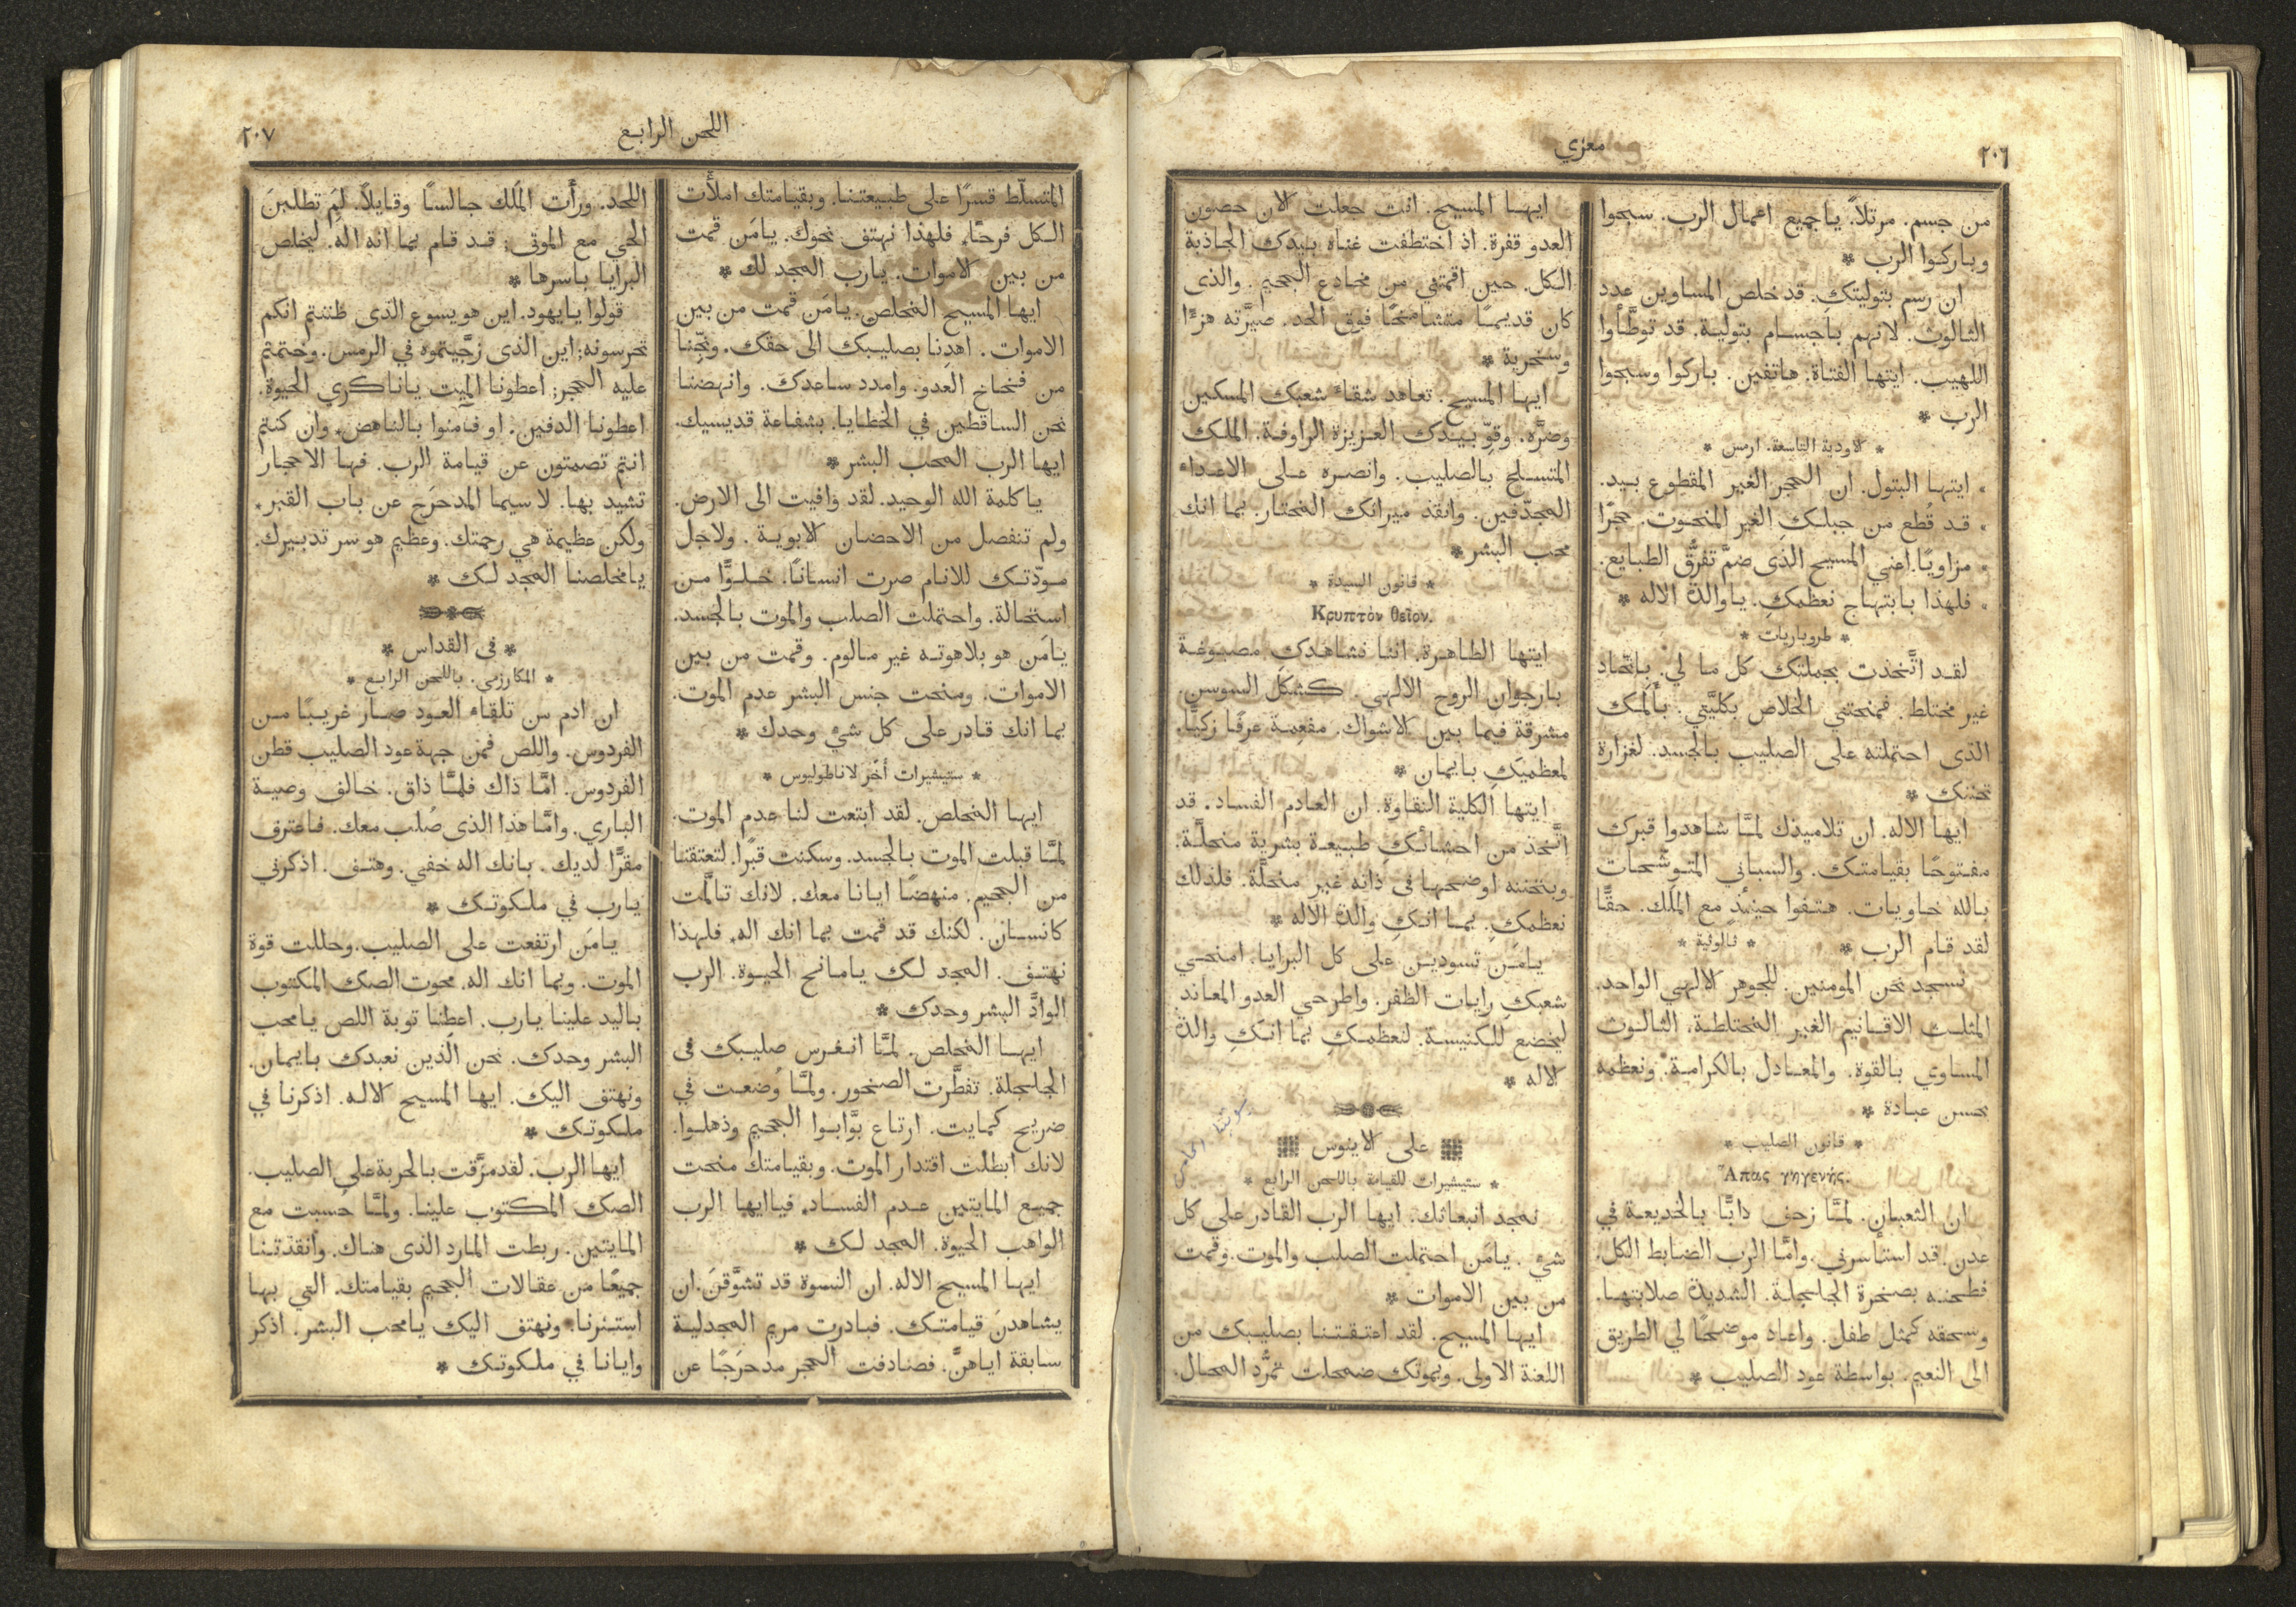 ٢٠٦
معزي
من جسم. مرتلاً. ياجميع اعمال الرب. سبحوا
وباركوا الرب *
ان رسم بتوليتكِ. قد خلص المساوين عدد
الثالوث. لانهم باجسام بتولية. قد توطَّأوا
اللهيب. ايتها الفتاة. هاتفين. باركوا وسبحوا
الرب *
* الاودية التاسعة. ارمس *
ايتها البتول. ان الحجر الغير المقطوع بيد.
قد قُطع من جبلكِ الغير المنحوت. حجرًا
مزاويًا. اعني المسيح الذى ضمَّ تفرُّق الطبايع.
فلهذا بابتهاج نعظمكِ. ياوالدة الاله *
* طروباريات *
لقد اتَّخذت بجملتك كل ما لي. باتحاد
غير مختلط. فمنحتني الخلاص بكليَّتي. بألمك
الذى احتملته على الصليب بالجسد. لغزارة
تحننك *
ايها الاله. ان تلاميذك لمَّا شاهدوا قبرك
مفتوحًا بقيامتك. والسباني المتوشحات
بالله خاويات. هتفوا حينئذٍ مع الملَك. حقًّا
لقد قام الرب * * ثالوثية *
نسجد نحن المومنين. للجوهر الالهي الواحد.
المثلث الاقانيم الغير المختلطة. الثالوث
المساوي بالقوة. والمعادل بالكرامة. ونعظمه
بحسن عبادة *
* قانون الصليب *
Ἅπας γηγενής.
ان الثعبان. لمَّا زحف دابًّا بالخديعة في
عدن. قد استأسرني. وامَّا الرب الضابط الكل.
فطحنه بصخرة الجلجلة. الشديدة صلابتها.
وسحقه كمثل طفل. واعاد موضحًا لي الطريق
الى النعيم. بواسطة عود الصليب *
ايها المسيح. انت جعلت الان حصون
العدو قفرة. اذ اختطفت غناه بيدك الجاذبة
الكل. حين اقمتني من مخادع الجحيم. والذى
كان قديمًا متشامخًا فوق الحد. صيَّرته هزءًا
وسخرية *
ايها المسيح. تعاهد شقاء شعبك المسكين
وضرَّه. وقوِّ بيدك العزيزة الراوفة. الملك
المتسلح بالصليب. وانصره على الاعداء
المجدّفين. وانقذ ميراثك المختار. بما انك
محب البشر *
* قانون السيدة *
Κρυπτὸν θεῖον.
ايتها الطاهرة. اننا نشاهدكِ مصبوغة
بارجوان الروح الالهي. كشبكل السوسن.
مشرقة فيما بين الاشواك. مفعمة عرفًا زكيًّا.
لمعظميكِ بايمان *
ايتها الكلية النقاوة. ان العادم الفساد. قد
اتَّخذ من احشائكِ طبيعة بشرية منحلَّة.
وبتحننه اوضحها فى ذاته غير منحلَّة. فلذلك
نعظمكِ. بما انكِ والدة الاله *
يامَن تسودين على كل البرايا. امنحي
شعبكِ رايات الظفر. واطرحي العدو المعاند
ليخضع للكنيسة. لنعظمكِ بما انكِ والدة
الاله *
على الاينوس
* ستيشيرات للقيامة باللحن الرابع *
نمجد انبعاثك. ايها الرب القادر على كل
شيء. يامَن احتملت الصلب والموت. وقمت
من بين الاموات *
ايها المسيح. لقد اعتقتنا بصليبك من
اللعنة الاولى. وبموتك ضمحلت تمرُّد المحال.
اللحن الرابع
٢٠٧
المتسلّط قسرًا على طبيعتنا. وبقيامتك املأت
الكل فرحًا. فلهذا نهتف نحوك. يامَن قمت
من بين الاموات. يارب المجد لك *
ايها المسيح المخلص. يامَن قمت من بين
الاموات. اهدِنا بصليبك الى حقك. ونجِّنا
من فخاخ العدو. وامدد ساعدك. وانهضنا
نحن الساقطين في الخطايا. بشفاعة قديسيك.
ايها الرب المحب البشر *
ياكلمة الله الوحيد. لقد وافيت الى الارض.
ولم تنفصل من الاحضان الابوية. ولاجل
مودّتك للانام صرت انسانًا. خلوًّا من
استحالة. واحتملت الصلب والموت بالجسد.
يامَن هو بلاهوته غير مالوم. وقمت من بين
الاموات. ومنحت جنس البشر عدم الموت.
بما انك قادر على كل شيء وحدك *
* ستيشيرات أُخَر لاناطوليوس *
ايها المخلص. لقد ابتعت لنا عدم الموت.
لمَّا قبلت الموت بالجسد. وسكنت قبرًا. لتعتقنا
من الجحيم. منهضًا ايانا معك. لانك تالَّمت
كانسان. لكنك قد قمت بما انك اله. فلهذا
نهتف. المجد لك يامانح الحيوة. الرب
الوادَّ البشر وحدك *
ايها المخلص. لمَّا انغرس صليبك فى
الجلجلة. تفطَّرت الصخور. ولمَّا وُضعت في
ضريح كمايت. ارتاع بوَّابوا الجحيم وذهلوا.
لانك ابطلت اقتدار الموت. وبقيامتك منحت
جميع المايتين عدم الفساد. فياايها الرب
الواهب الحيوة. المجد لك *
ايها المسيح الاله. ان النسوة قد تشوَّقنَ. ان
يشاهدنَ قيامتك. فبادرت مريم المجدلية
سابقة اياهنَّ. فصادفت الحجر مدحرَجًا عن
اللحد. ورأَت الملَك جالسًا وقايلاً. لِمَ تطلبنَ
الحي مع الموتى: قد قام بما انه اله. ليخلص
البرايا باسرها *
قولوا يايهود. اين هو يسوع الذى ظننتم انكم
تحرسونه: اين الذى زجَّيتموه في الرمس. وختمتم
عليه الحجر: اعطونا الميت ياناكري الحيوة.
اعطونا الدفين. او فآمنوا بالناهض. وان كنتم
انتم تصمتون عن قيامة الرب. فها الاحجار
تشيد بها. لا سيما المدحرَج عن باب القبر.
ولكن عظيمة هي رحمتك. وعظيم هو سر تدبيرك.
يامخلصنا المجد لك *
* فى القداس *
* المكارزمي. باللحن الرابع *
ان ادم من تلقاء العود صار غريبًا من
الفردوس. واللص فمن جهة عود الصليب قطن
الفردوس. امَّا ذاك فلمَّا ذاق. خالف وصية
الباري. وامَّا هذا الذى صُلب معك. فاعترف
مقرًّا لديك. بانك اله خفي. وهتف. اذكرني
يارب في ملكوتك *
يامَن ارتفعت على الصليب. وحللت قوة
الموت. وبما انك اله. محوت الصك المكتوب
باليد علينا يارب. اعطِنا توبة اللص يامحب
البشر وحدك. نحن الذين نعبدك بايمان.
ونهتف اليك. ايها المسيح الاله. اذكرنا في
ملكوتك *
ايها الرب. لقد مزَّقت بالحربة على الصليب.
الصك المكتوب علينا. ولمَّا حسبت مع
المايتين. ربطت المارد الذى هناك. وانقذتنا
جميعًا من عقالات الجحيم بقيامتك. التي بها
استنرنا. ونهتف اليك يامحب البشر. اذكر
وايانا في ملكوتك *